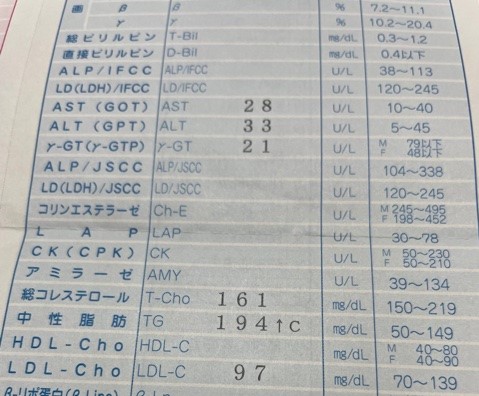 画 β β % 7.2～11.1
γ γ % 10.2～20.4
総ビリルビン T-Bil mg/dL 0.3～1.2
直接ビリルビン D-Bil mg/dL 0.4以下
ALP/IFCC ALP/IFCC U/L 38～113
LD(LDH)/IFCC LD/IFCC U/L 120～245
AST(GOT) AST 28 U/L 10～40
ALT(GPT) ALT 33 U/L 5～45
γ-GT(γ-GTP) γ-GT 21 U/L M 79以下 F 48以下
ALP/JSCC ALP/JSCC U/L 104～338
LD(LDH)/JSCC LD/JSCC U/L 120～245
コリンエステラーゼ Ch-E U/L M 245～495 F 198～452
LAP LAP U/L 30～78
CK(CPK) CK U/L M 50～230 F 50～210
アミラーゼ AMY U/L 39～134
総コレステロール T-Cho 161 mg/dL 150～219
中性脂肪 TG 194↑C mg/dL 50～149
HDL-Cho HDL-C mg/dL M 40～80 F 40～90
LDL-Cho LDL-C 97 mg/dL 70～139